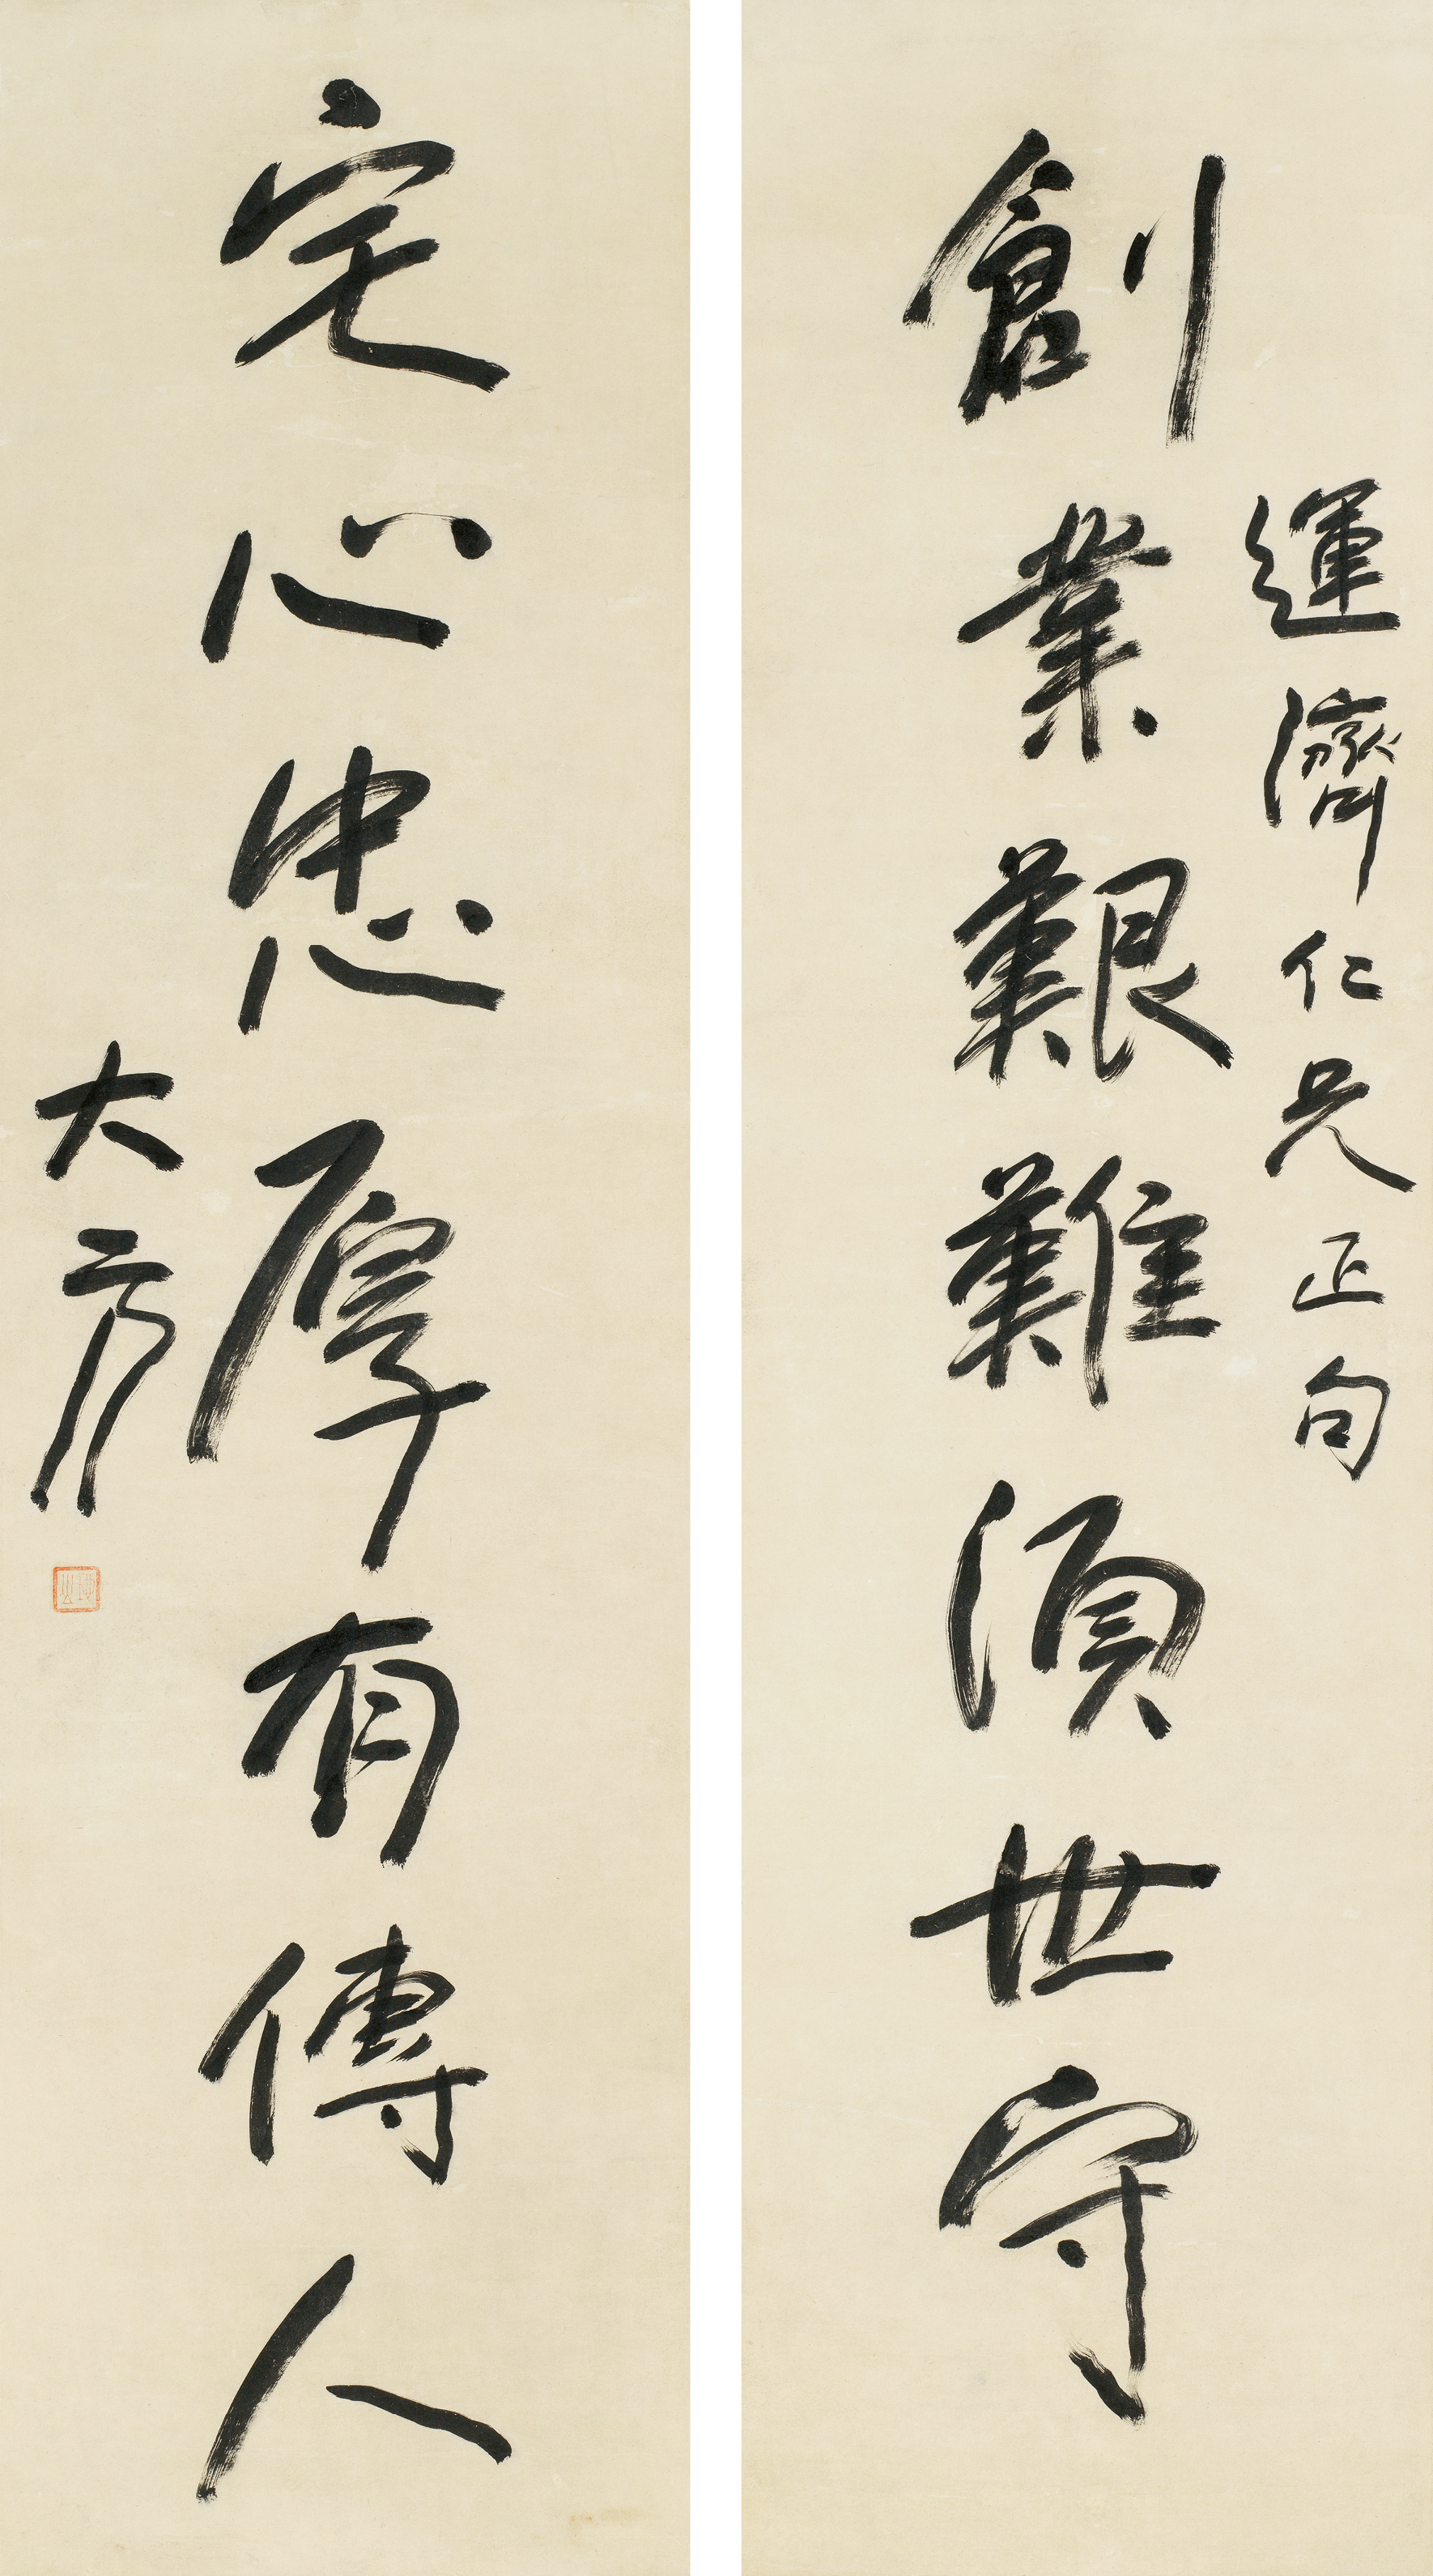 運濟仁兄正句
創業艱難須世守
宅心忠厚有傳人
大方